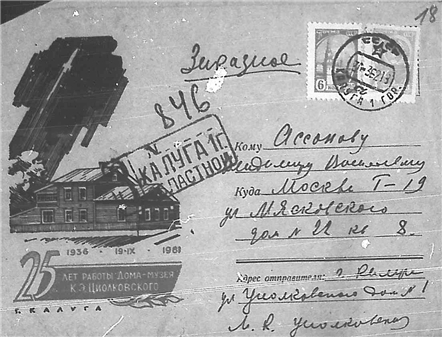 18
Заказное
846
КАЛУГА 1 ГОР.
6
КАЛУГА 1 Г
ЛАСТНОЙ
Кому Ассонову
Василевичу
Куда Москва Т-19
ул Мясковского
дом N 22 кв 8.
Адрес отправителя: г. Калуга
ул Циолковского дом N 1
М. К. Циолковская
1936 - 19-IX - 1961
25 ЛЕТ РАБОТЫ ДОМА-МУЗЕЯ
К.Э. ЦИОЛКОВСКОГО
Г. КАЛУГА